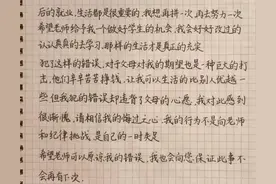 后的就业、生活都是很重要的。我想再拼一次,再去努力一次
希望老师给予我一个做好学生的机会,我会好好改过的
认认真真的去学习,那样的生活才是真正的充实
犯了这样的错误,对于父母对我的期望也是一种巨大的
打击,他们辛辛苦苦挣钱,让我可以生活的比别人优越一
些,但我犯的错误却违背了父母的心愿,我对此感到
很惭愧,请相信我的悔过之心。我的行为不是向老师
和纪律挑战,是自己的一时失足
希望老师可以原谅我的错误,我也会向您保证此事不
会再有下次。